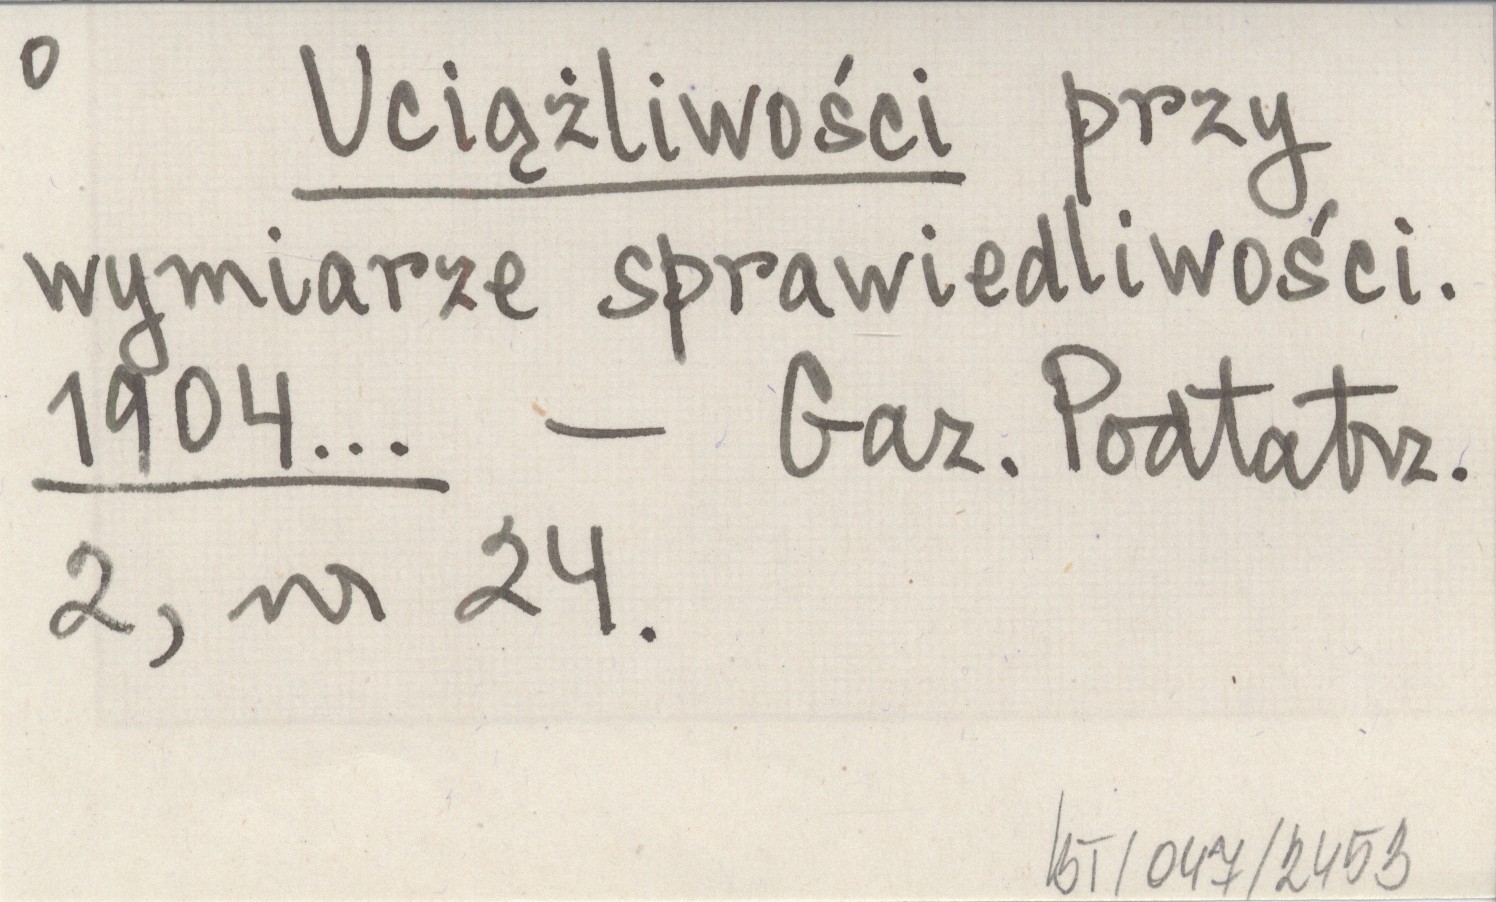 o
Uciążliwości przy
wymiarze sprawiedliwości.
1904... — Gaz. Podtatrz.
2, nr 24.
BT/047/2453